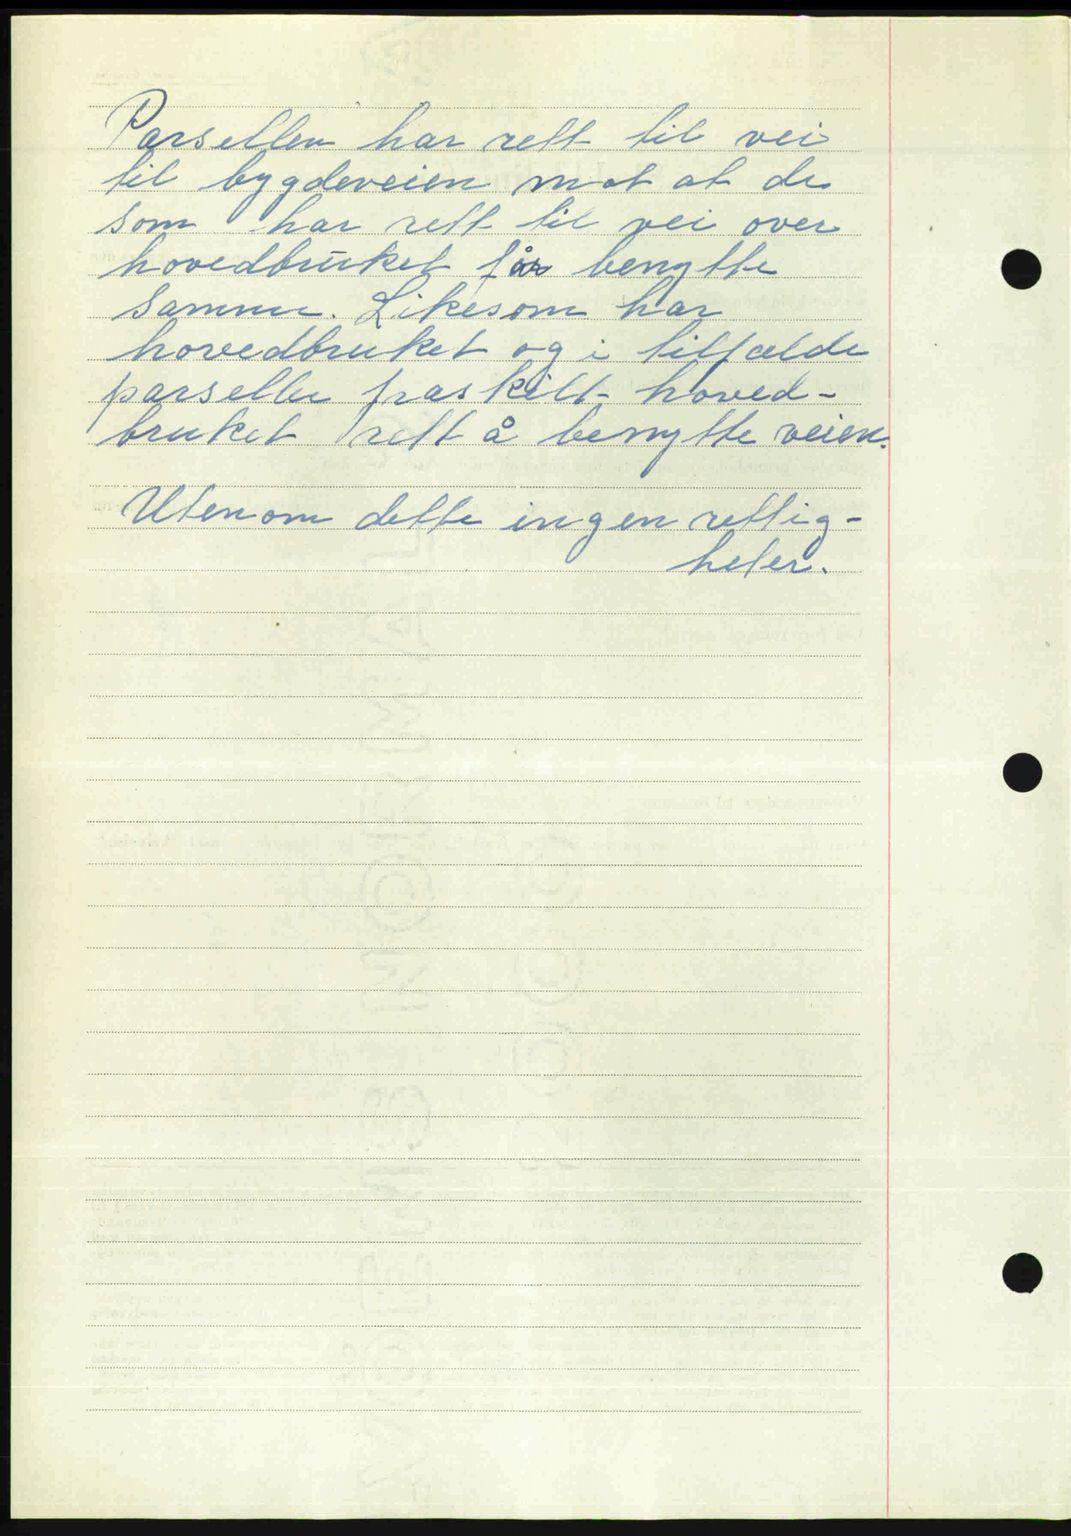 Parsellen har rett til vei
til bygdeveien mot at de
som har rett til vei over
hovedbruket får benytte
samme. Likesom har
hovedbruket og i tilfælde
parseller fraskilt hoved-
bruket rett å benytte veien.
Utenom dette ingen rettig-
heter.